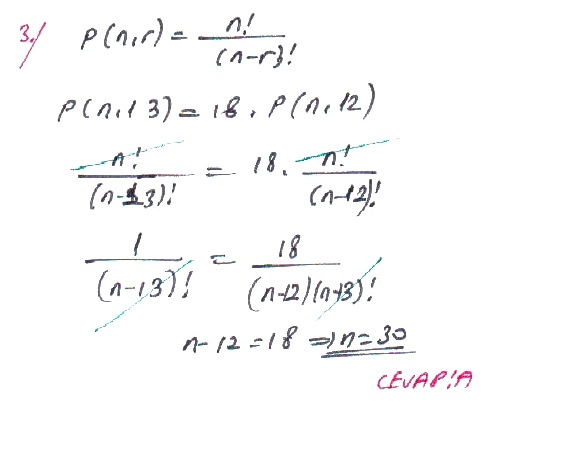 3./ P(n,r) = n! / (n-r)!
P(n,13) = 18. P(n,12)
n! / (n-13)! = 18. n! / (n-12)!
1 / (n-13)! = 18 / (n-12)(n-13)!
n-12 = 18 ⇒ n = 30
CEVAP:A